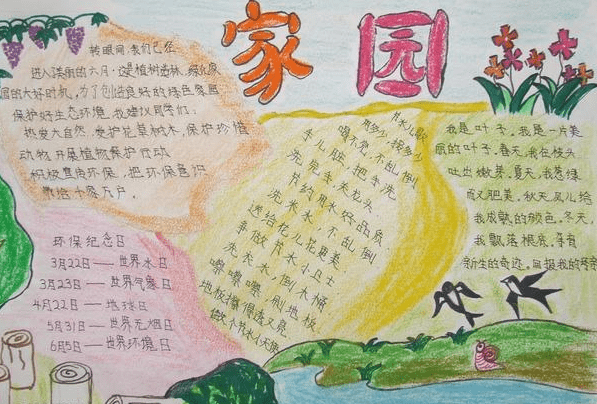 家园
转眼间,我们已经
进入美丽的六月,这是植树造林、绿化家
园的大好时机,为了创造良好的绿色家园
保护好生态环境,我建议同学们:
热爱大自然,爱护花草树木,保护珍惜
动物,开展植物保护行动
积极宣传环保,把环保意识
带给千家万户。
环保纪念日
3月22日——世界水日
3月23日——世界气象日
4月22日——地球日
5月31日——世界无烟日
6月5日——世界环境日
节水儿歌
用多少,接多少
喝不完,不乱倒
手儿脏,把手洗
洗完手,关龙头
节约用水好品质
洗米水,不乱倒
送给花儿花更美
争做节水小卫士
洗衣水,倒大桶
噼噼噼,刷地板
地板擦得透又亮
做个节水小天使
我是叶子,我是一片美
丽的叶子。春天,我在枝头
吐出嫩芽,夏天,我葱绿
而又肥美,秋天,风儿给
我成熟的颜色,冬天,
我飘落根底,孕育
新生的奇迹,回报我的母亲